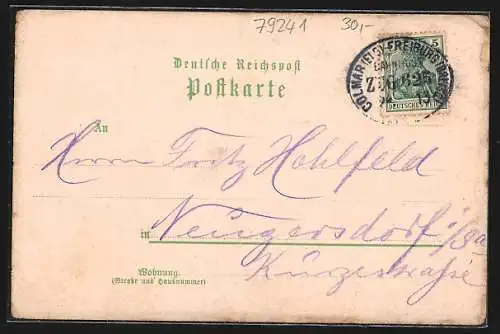 79241 30,-
Deutsche Reichspost
Postkarte
COLMAR(ELS)-FREIBURG
BAHNPOST
ZUG 825
5
DEUTSCHES REICH
An
Herrn Fritz Hohlfeld
in Neugersdorf i/Sa
Wohnung.
(Straße und Hausnummer)
Kürzestraße